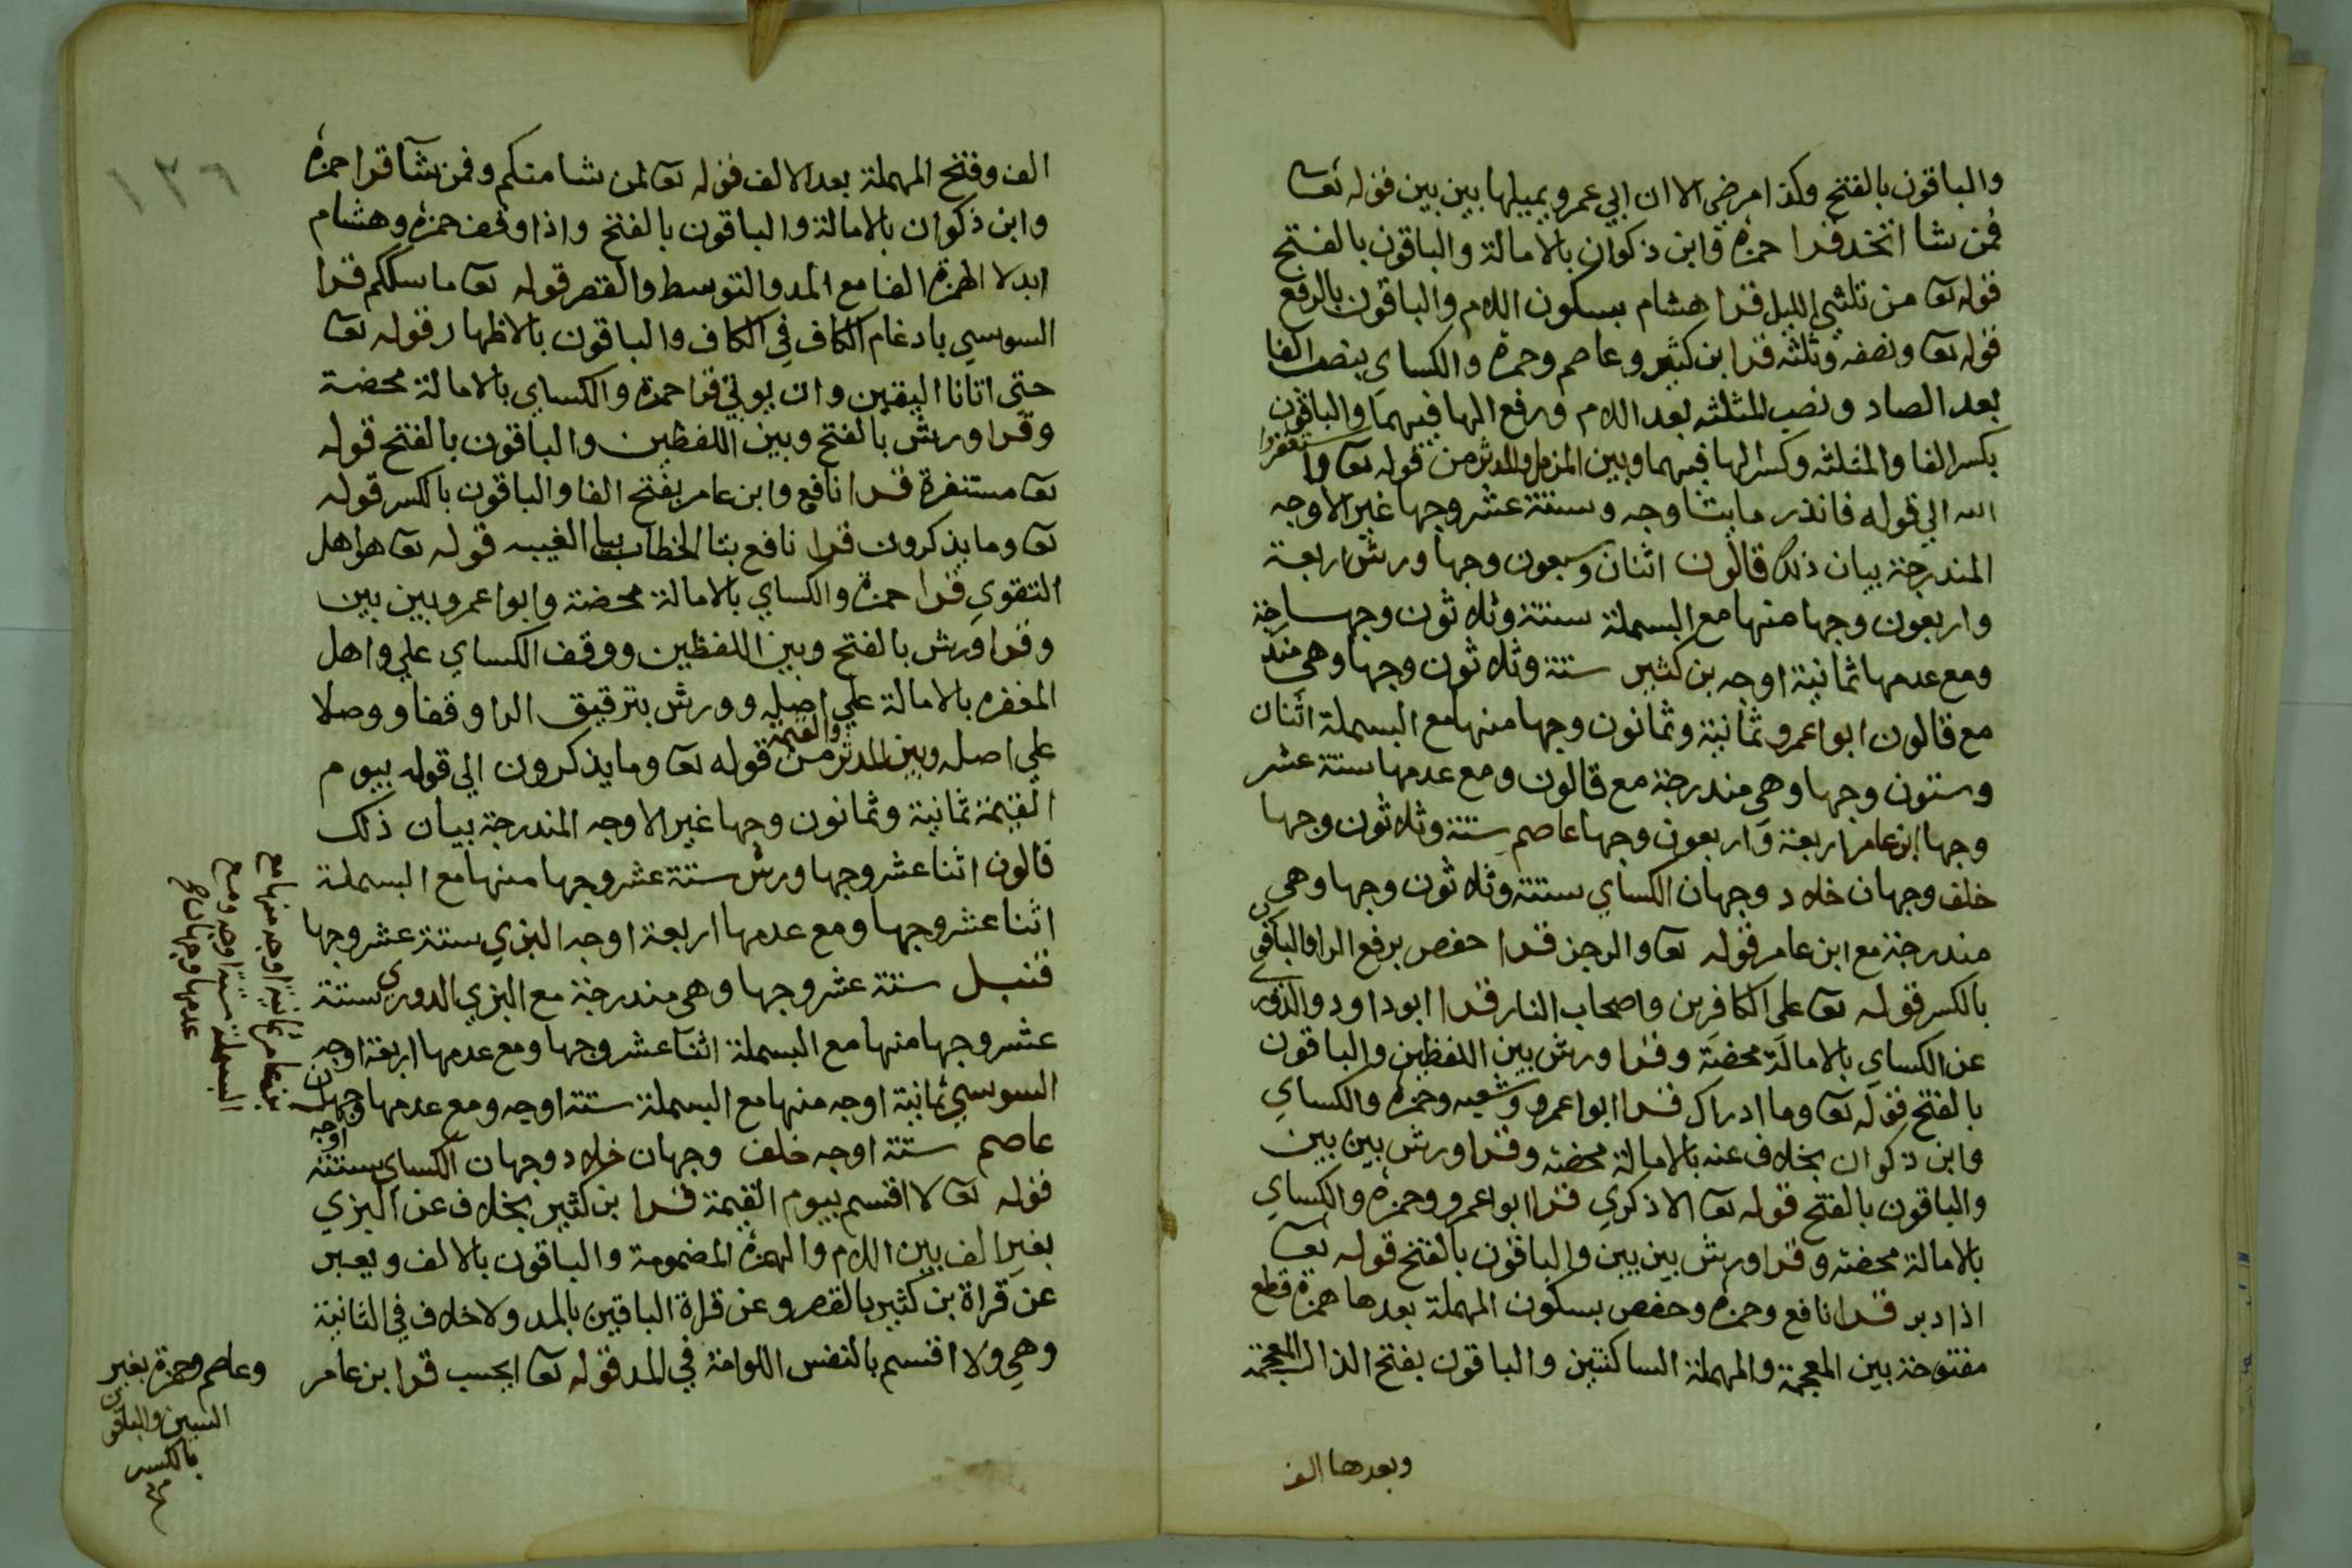 والباقون بالفتح وكذا مرضى الا ان ابي عمرو يميلها بين بين قوله تعا
فمن شا اتخذ قرا حمزه وابن ذكوان بالامالة والباقون بالفتح
قوله تعا من ثلثي الليل قرا هشام بسكون اللام والباقون بالرفع
قوله تعا ونصفه وثلثه قرا ابن كثير وعاصم وحمزة والكساي بنصب الفا
بعد الصاد ونصب المثلثه بعد اللام ورفع الها فيهما والباقون
بكسر الفا والمثلثه وكسر الها فيهما وبين المزمل والمدثر من قوله تعا واستغفروا
الله الي قوله فانذر مايتا وجه وستة عشر وجها غير الاوجه
المندرجة بيان ذلك قالون اثنان وسبعون وجها ورش اربعة
واربعون وجها منها مع البسملة ستة وثلاثون وجها
ومع عدمها ثمانية اوجه بن كثير ستة وثلاثون وجها وهي مندرجة
مع قالون ابوا عمرو ثمانية وثمانون وجها منها مع البسملة اثنان
وستون وجها وهي مندرجة مع قالون ومع عدمها ستة عشر
وجها ابن عامر اربعة واربعون وجها عاصم ستة وثلاثون وجها
خلف وجهان خلاد وجهان الكساي ستة وثلاثون وجها وهي
مندرجة مع ابن عامر قوله تعا والرجز قرا حفص برفع الرا والباقون
بالكسر قوله تعا على الكافرين واصحاب النار قرا ابوا داود والدوري
عن الكساي بالامالة محضة وقرا ورش بين اللفظين والباقون
بالفتح قوله تعا وما ادراك قرا ابوا عمرو وشعبه وحمزه والكساي
وابن ذكوان بخلاف عنه بالامالة محضه وقرا ورش بين بين
والباقون بالفتح قوله تعا الا ذكري قرا ابوا عمرو وحمزه والكساي
بالامالة محضه وقرا ورش بين بين والباقون بالفتح قوله تعا
اذا دبر قرا نافع وحمزه وحفص بسكون المهملة بعدها همزة قطع
مفتوحة بين المعجمة والمهملة الساكنتين والباقون بفتح الذال المعجمة
وبعدها الف
١٢٦
الف وفتح المهملة بعد الالف قوله تعا لمن شا منكم وفمن شآ قرا حمزه
وابن ذكوان بالامالة والباقون بالفتح واذا وقف حمزه وهشام
ابدلا الهمزة الفا مع المد والتوسط والقصر قوله تعا ما سلككم قرا
السوسي بادغام الكاف في الكاف والباقون بالاظهار قوله تعا
حتى اتانا اليقين وان يوتي قرا حمزة والكساي بالامالة محضة
وقرا ورش بالفتح وبين اللفظين والباقون بالفتح قوله
تعا مستنفرة قرا نافع وابن عامر بفتح الفا والباقون بالكسر قوله
تعا وما يذكرون قرا نافع بتا الخطاب بيا الغيبه قوله تعا هو اهل
التقوي قرا حمزة والكساي بالامالة محضة وابوا عمرو بين بين
وقرا ورش بالفتح وبين اللفظين ووقف الكساي علي واهل
المغفره بالامالة علي اصله وورش بترقيق الرا وقفا ووصلا
علي اصله وبين المدثر والقيمة من قوله تعا وما يذكرون الي قوله بيوم
القيمة ثمانية وثمانون وجها غير الاوجه المندرجة بيان ذلك
قالون اثنا عشر وجها ورش ستة عشر وجها منها مع البسملة
اثنا عشر وجها ومع عدمها اربعة اوجه البزي ستة عشر وجها
قنبل ستة عشر وجها وهي مندرجة مع البزي الدوري ستة
عشر وجها منها مع البسملة اثنا عشر وجها ومع عدمها اربعة اوجه
السوسي ثمانية اوجه منها مع البسملة ستة اوجه ومع عدمها وجهان
عاصم ستة اوجه خلف وجهان خلاد وجهان الكساي ستة اوجه
قوله تعا لا اقسم بيوم القيمة قرا بن كثير بخلاف عن البزي
بغير الف بين اللام والهمزة المضمومة والباقون بالالف ويعبر
عن قراة بن كثير بالقصر وعن قراة الباقين بالمد ولا خلاف في الثانية
وهي ولا اقسم بالنفس اللوامة في المد قوله تعا ايحسب قرا بن عامر
بن عامر ثمانية اوجه منها مع
البسملة ستة اوجه ومع
عدمها وجهان صح
وعاصم وحمزة بغير
السين والباقون
بالكسر